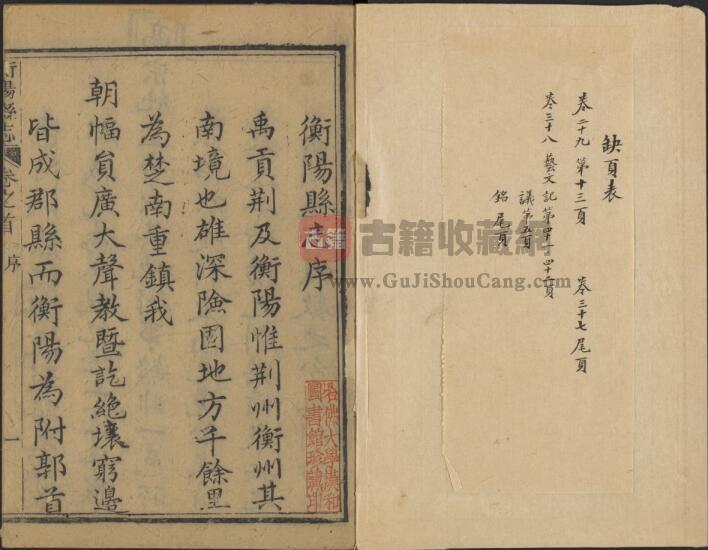 缺頁表
卷二十九 第十三頁 卷三十七 尾頁
卷三十八 藝文記第四十一四十二頁
議第五頁
銘尾頁
衡陽縣志序
禹貢荆及衡陽惟荆州衡州其
南境也雄深險固地方千餘里
為楚南重鎮我
朝幅員廣大聲教暨訖絶壤窮邊
皆成郡縣而衡陽為附郭首
衡陽縣志 卷之首 序 一
哈佛大學漢和
圖書館珍藏印
古籍
古籍收藏网
www.GuJiShouCang.com